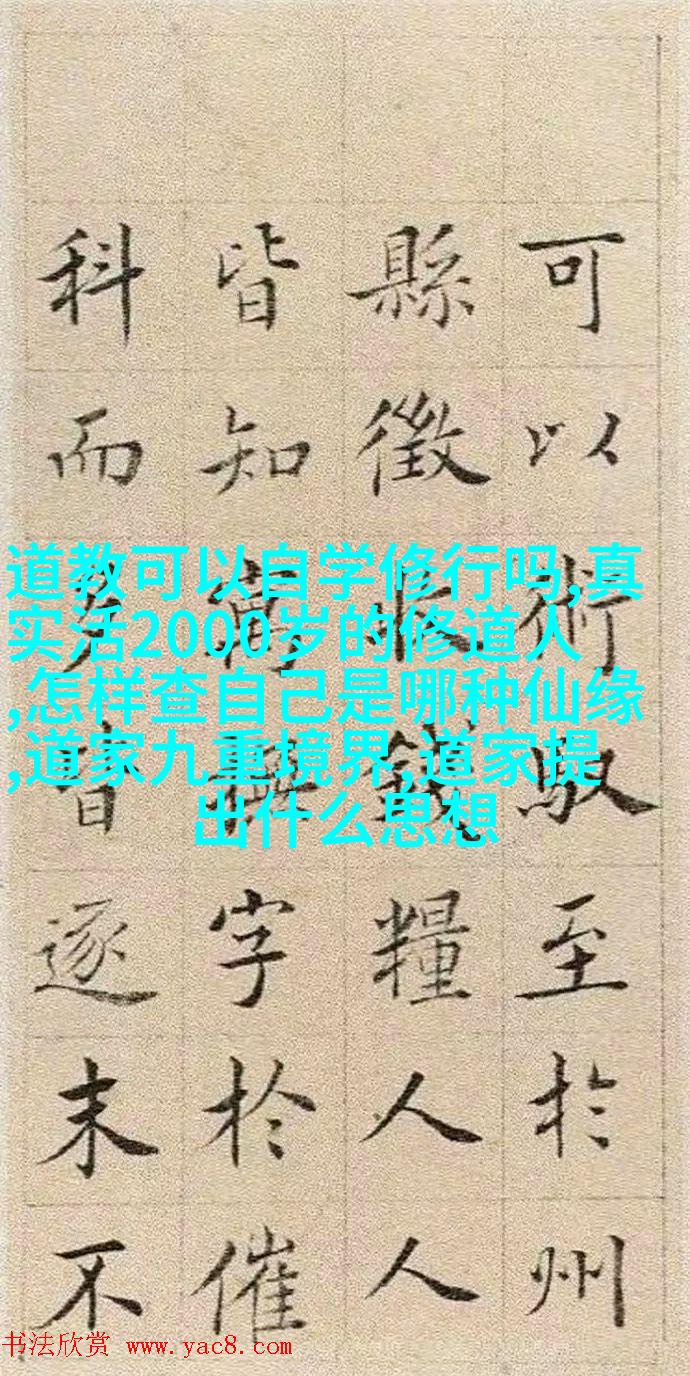 道教可以自学修行吗,真
实活2000岁的修道人
,怎样查自己是哪种仙缘
,道家九重境界,道家提
出什么思想
可以術馭至於州
縣徵收錢糧人人
皆知寓撫字於催
科而皆逐末不
书法欣赏 www.yac8.com